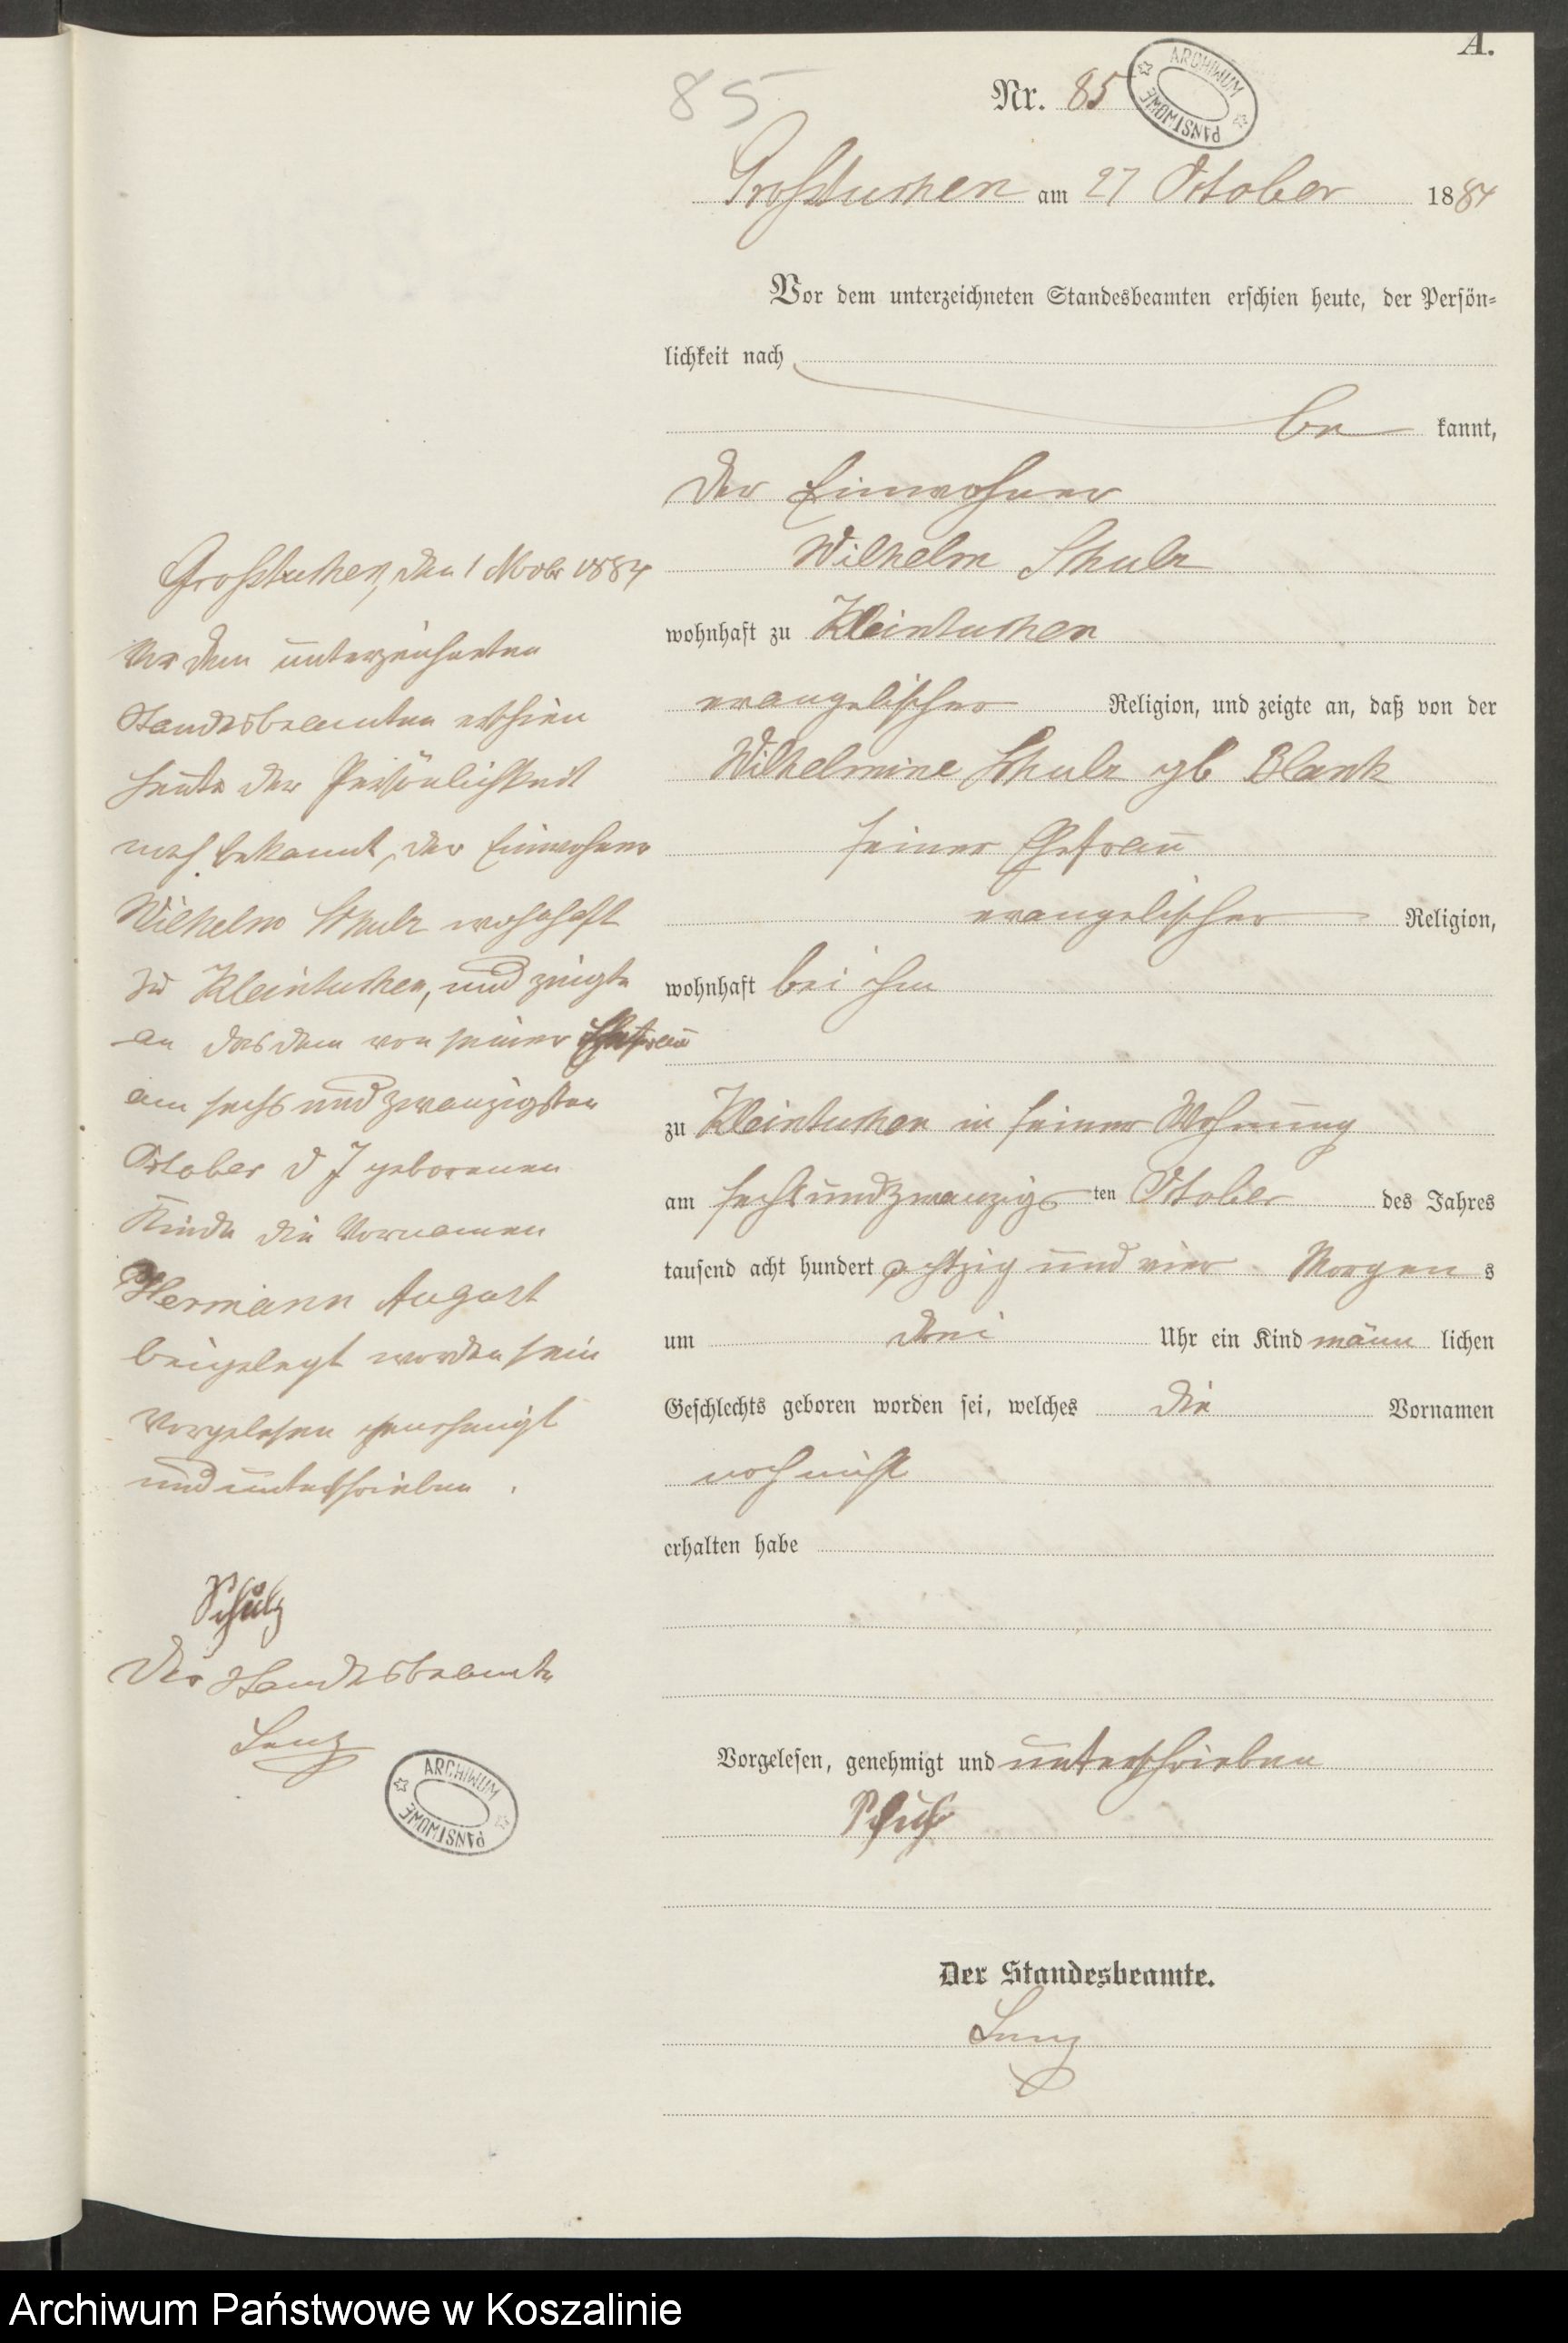 A.
85
Nr. 85
ARCHIWUM PAŃSTWOWE
Grosstuchen am 27 October 1884
Vor dem unterzeichneten Standesbeamten erschien heute, der Persön-
lichkeit nach
be kannt,
der Einwohner
Wilhelm Schulz
wohnhaft zu Kleintuchen
evangelischer Religion, und zeigte an, daß von der
Wilhelmine Schulz gb Blank
seiner Ehefrau
evangelischer Religion,
wohnhaft bei ihm
zu Kleintuchen in seiner Wohnung
am sechsundzwanzigs ten October des Jahres
tausend acht hundert achtzig und vier Morgen s
um drei Uhr ein Kind männ lichen
Geschlechts geboren worden sei, welches die Vornamen
noch nicht
erhalten habe
Vorgelesen, genehmigt und unterschrieben
Schulz
Der Standesbeamte.
Lenz
Grosstuchen, den 1 Novbr 1884
Vor dem unterzeichneten
Standesbeamten erschien
heute der Persönlichkeit
nach bekannt, der Einwohner
Wilhelm Schulz wohnhaft
zu Kleintuchen, und zeigte
an das dem von seiner Ehefrau
am sechsundzwanzigsten
October d J geborenen
Kinde die Vornamen
Hermann August
beigelegt worden sein
Vorgelesen genehmigt
und unterschrieben.
Schulz
Der Standesbeamte
Lenz
ARCHIWUM PAŃSTWOWE
Archiwum Państwowe w Koszalinie